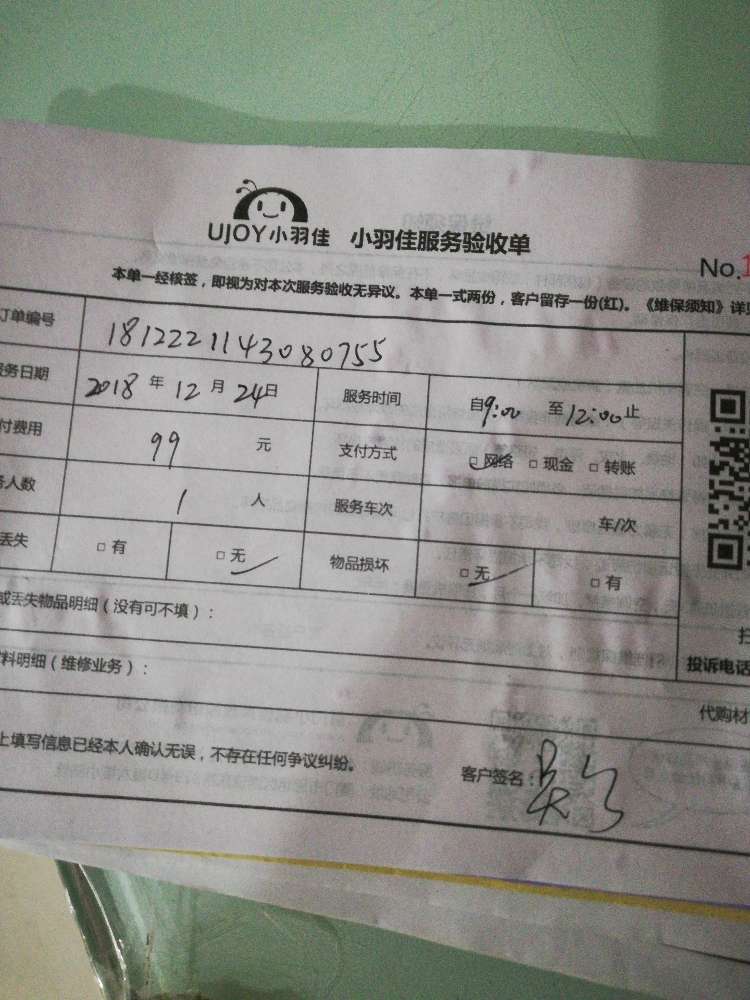 UJOY小羽佳 小羽佳服务验收单
No.1
本单一经核签，即视为对本次服务验收无异议。本单一式两份，客户留存一份(红)。《维保须知》详见
订单编号 1812221143080755
服务日期 2018 年 12 月 24日 服务时间 自9:00 至12:00止
付费用 99 元 支付方式 □网络 □现金 □转账
务人数 1 人 服务车次 车/次
丢失 □有 □无 物品损坏 □无 □有
或丢失物品明细（没有可不填）：
料明细（维修业务）：
扫
投诉电话
代购材
上填写信息已经本人确认无误，不存在任何争议纠纷。 客户签名：